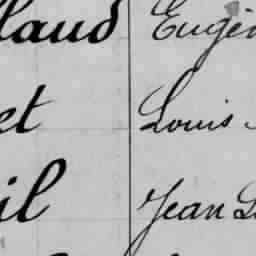 laud Eugèn
et Louis
il Jean L